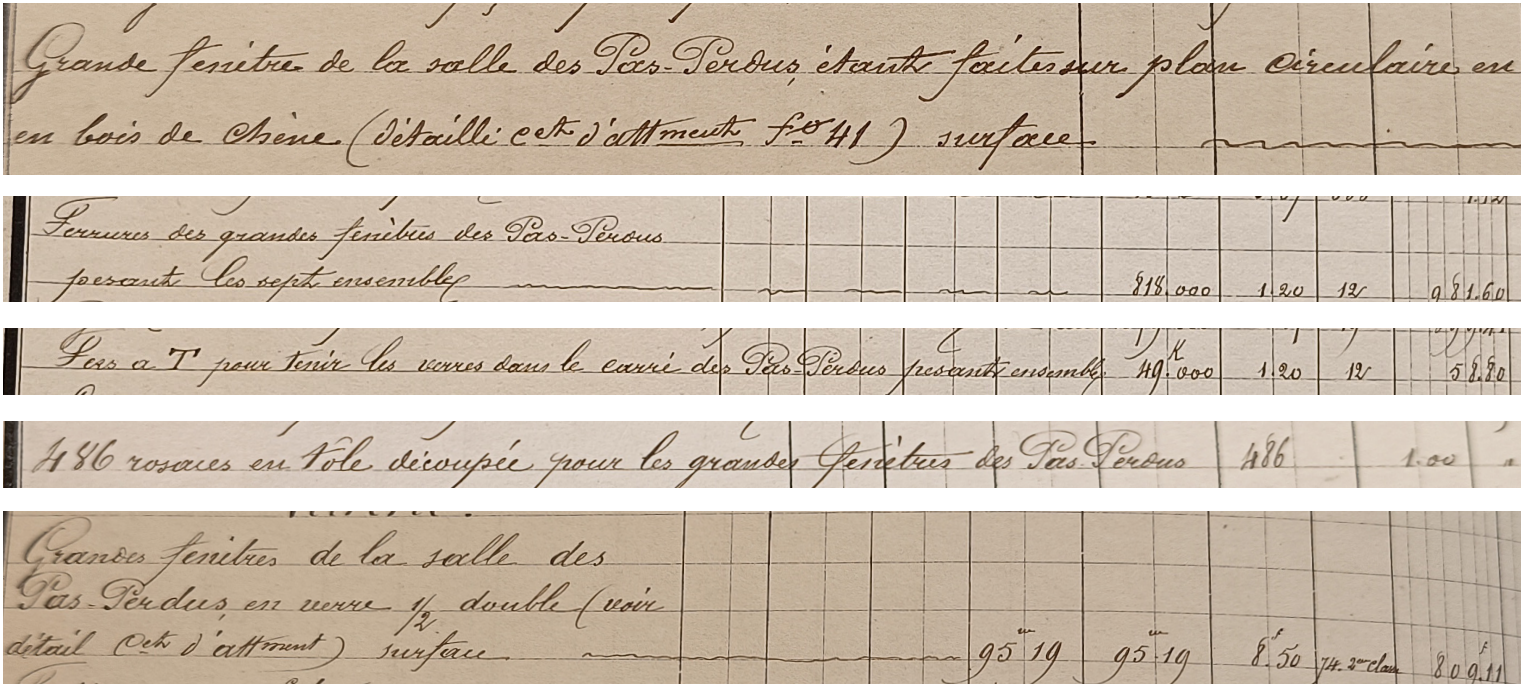 Grande fenêtre de la salle des Pas-Perdus, étant faites sur plan circulaire en
en bois de chêne (détaillé cet d'attment fo 41) surface
Ferrures des grandes fenêtres des Pas-Perdus
pesant les sept ensemble 818.000 1.20 12 981.60
Fers a T pour tenir les verres dans le carré des Pas-Perdus pesant ensembl. 49.K000 1.20 12 58.80
486 rosaces en tôle découpée pour les grandes fenêtres des Pas Perdus 486 1.00 "
Grandes fenêtres de la salle des
Pas-Perdus en verre 1/2 double (voir
détail cet d'attment) surface 95m19 95m19 8f.50 74.2me class 809f.11